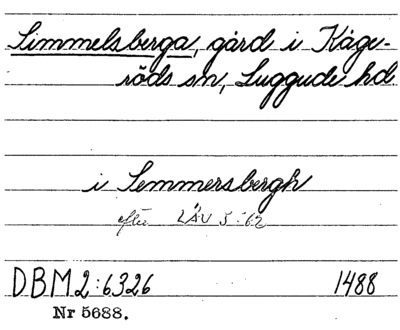 Simmelsberga, gård i Kåge-
röds sn, Luggude hd
i Semmersbergh
efter LÄU 5:62
D.B.M.2:6326 1488
Nr 5688.